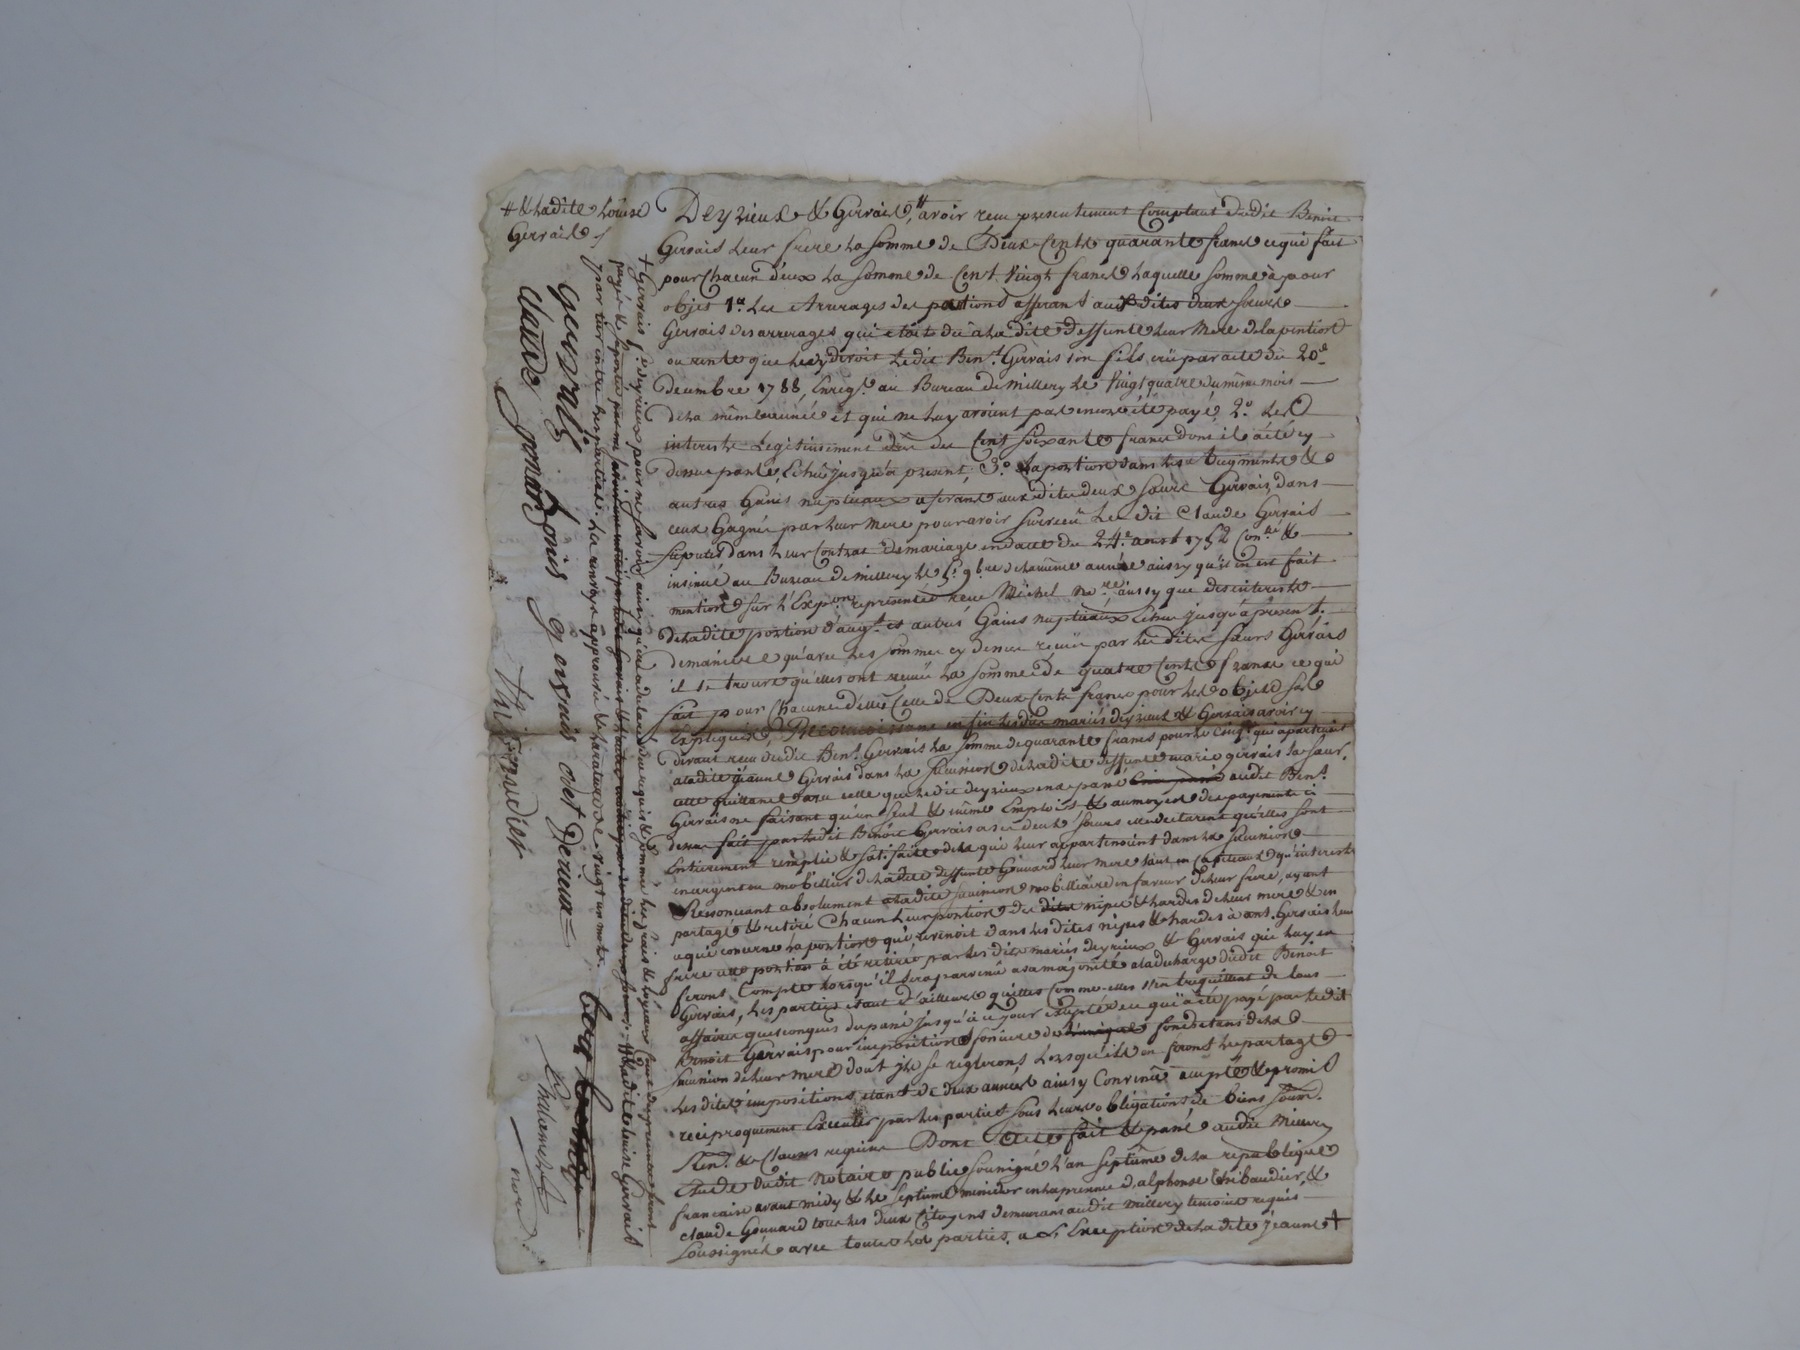 # & Ladite Louise
Gervais /
Deyrieux & Gervais, # avoir recu presentement Comptant dudit Benoit
Gervais Leur frere La somme de Deux Cents quarante francs ce qui fait
pour Chacun d'eux La somme de Cent Vingt francs Laquelle somme a pour
objet 1° Les Arrerages des portions afferant aux dites deux soeurs
Gervais des arrerages qui etoit du a La dite deffunte Leur Mere de la pention
ou rente que Luy devoit Ledit Ben.t Gervais son fils, par acte du 20e
decembre 1788, Enreg.é au Bureau de Millery Le Vingt quatre du meme mois
de La meme année et qui ne Luy avoient pas encore été payé 2° Les
interests Legitimement dûs des Cent soixante francs dont il a été cy
dessus parlé, Echus jusqu'a present, 3° La portion dans Les augments &
autres Gains nuptiaux aferant aux dites deux soeurs Gervais, dans
ceux Gagnés par Leur Mere pour avoir survecu Le dit Claude Gervais
stipulés dans Leur Contrat de mariage en datte du 24e aoust 1752 Con.lé &
insinué au Bureau de Millery Le 5e 9bre de La meme année ainsy qu'il en est fait
mention sur L'Exp.on representée receu Michel No.re ainsy que des interests
de La dite portion d'aug.t et autres Gains nuptiaux Echus jusqu'a present.
de maniere qu'avec Les sommes cy dessus recues par Les dites soeurs Gervais
il se trouve qu'elles ont recu La somme de quatre Cents francs ce qui
fait pour Chacune d'elles Celle de Deux Cents francs pour Les objets sus
Expliqués, Reconnoissant en fin Lesdits mariés Deyrieux & Gervais avoir cy
devant recu dudit Ben.t Gervais La somme de quarante francs pour Le qui apartenoit
a La dite Jeanne Gervais dans La succession de La dite deffunte marie Gervais sa soeur.
cette quittance avec celle que Ledit Deyrieux en a passé audit Ben.t
Gervais ne faisant qu'un seul & meme Employs & au moyen des payements ci
dessus fait par Ledit Benoit Gervais a ses deux soeurs elles declarent qu'elles sont
Entierement remplies & satisfaites de ce qui Leur appartenoient dans La succession
en argent ou mobillier de La dite deffunte Gonnard Leur mere tant en Capiteaux qu'interests
Renonceant absolument a La dite succession mobilliaire en faveur de Leur frere, ayant
partagé & retiré Chacun Leur portion des nipes & hardes de Leur mere & en
ce qui concerne La portion qui revenoit dans Les dites nipes & hardes a ant. Gervais Leur
frere cette portion a été retirée par Les dits mariés Deyrieux & Gervais qui Luy en
feront Compte Lorsqu'il sera parvenu a sa majorité a La decharge dudit Benoit
Gervais, Les parties etant d'ailleurs quittes Comme elles s'en requittent de tous
affaires quelconques du passé jusqu'a ce jour excepté ce qui a été payé par Ledit
Benoit Gervais pour imposition fonciere de fonds etans de La
succession de Leur mere dont ils se regleront Lorsqu'ils en feront Le partage
Les dites impositions etant de deux années ainsy Convenu accepté & promis
reciproquement Executer par Les parties sous Leurs obligations de biens soum.
Ren.t & Clauses requises Dont Acte fait & passé audit Millery
Etude dudit Notaire public soussigné L'an septieme de La republique
francaise avant midy & Le septieme nivose en La presence d'alphonse Thibaudier, &
claude Gonnard tous Les deux Citoyens demeurans audit Millery temoins requis
soussignés avec toutes Les parties. a L'Exception de La dite Jeanne +
+ Gervais f.e Deyrieux pour ne savoir ainsy qu'elle a declaré de ce requis & sommée Les frais & Loyaux Couts des presentes seront
payé & suporté par
par tier entre Les parties. La renvoye approuvée & La rature de vingt un mots. # & La dite Louise Gervais
gervais Louis gervais ovet Derieux
Claude gonard
Thibaudier
Chalamel
nore